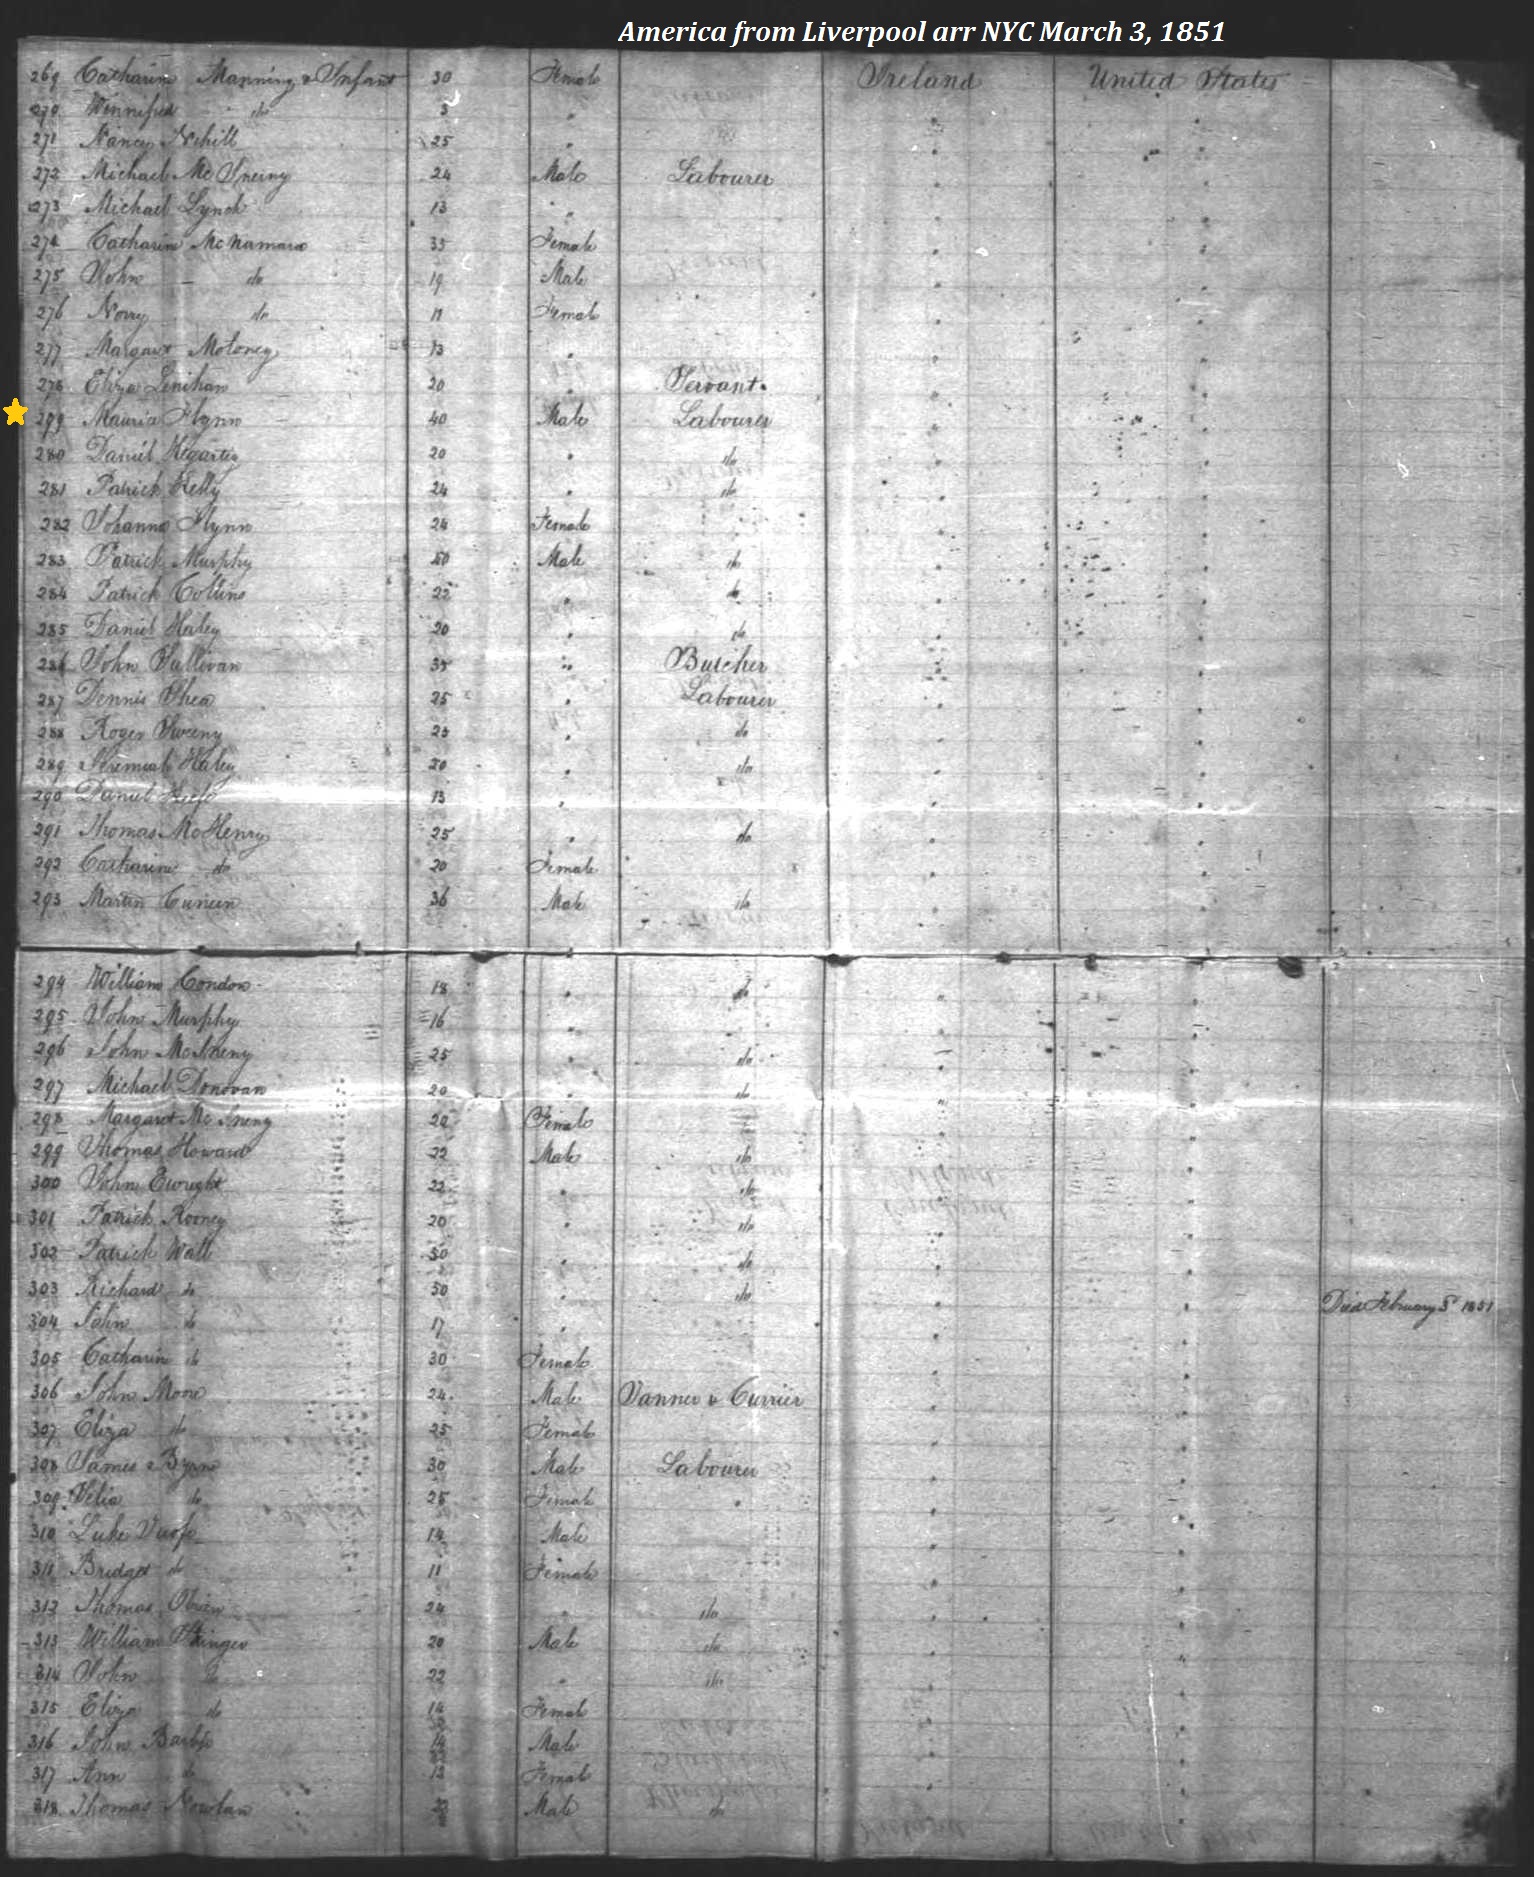 America from Liverpool arr NYC March 3, 1851
269 Catharin Manning & Infant 30 Female Ireland United States
270 Winnifred do 3 "
271 Nancy 25 "
272 Michael Mc 24 Male Labourer
273 Michael Lynch 13 "
274 Catharin McNamara 35 Female
275 John do 19 Male
276 Norry do 11 Female
277 Margaret Moloney 13 "
278 Eliza Lenihan 20 " Servant
279 Flynn 40 Male Labourer
280 Daniel Hegarty 20 " do
281 Patrick Kelly 24 " do
282 Johanna Flynn 24 Female
283 Patrick Murphy Male do
284 Patrick Collins 22 " do
285 Daniel Haley 20 " do
286 John Sullivan 35 " Butcher
287 Dennis Shea 25 " Labourer
288 Roger Sweeny 23 " do
289 Jeremiah Haley 20 " do
290 Daniel 13 "
291 Thomas McHenry 25 " do
292 Catharine do 20 Female
293 Martin 36 Male do
294 William Condon 18 " do
295 John Murphy 16 "
296 John 25 " do
297 Michael Donovan 20 " do
298 Margaret Mc 20 Female
299 Thomas Howard 22 Male do
300 John Enright 22 " do
301 Patrick Rooney 20 " do
302 Patrick Wall 50 " do
303 Richard do 50 " do Died February 1851
304 John do 17 "
305 Catharin do 30 Female
306 John Moore 24 Male Tanner & Currier
307 Eliza do 25 Female
308 James Byrne 30 Male Labourer
309 do 25 Female
310 Luke 14 Male
311 Bridget do 11 Female
312 Thomas Obrien 24 " do
313 William 20 Male do
314 John do 22 " do
315 Eliza do 14 Female
316 John 14 Male
317 Ann do 13 Female
318 Thomas Nowlan Male do